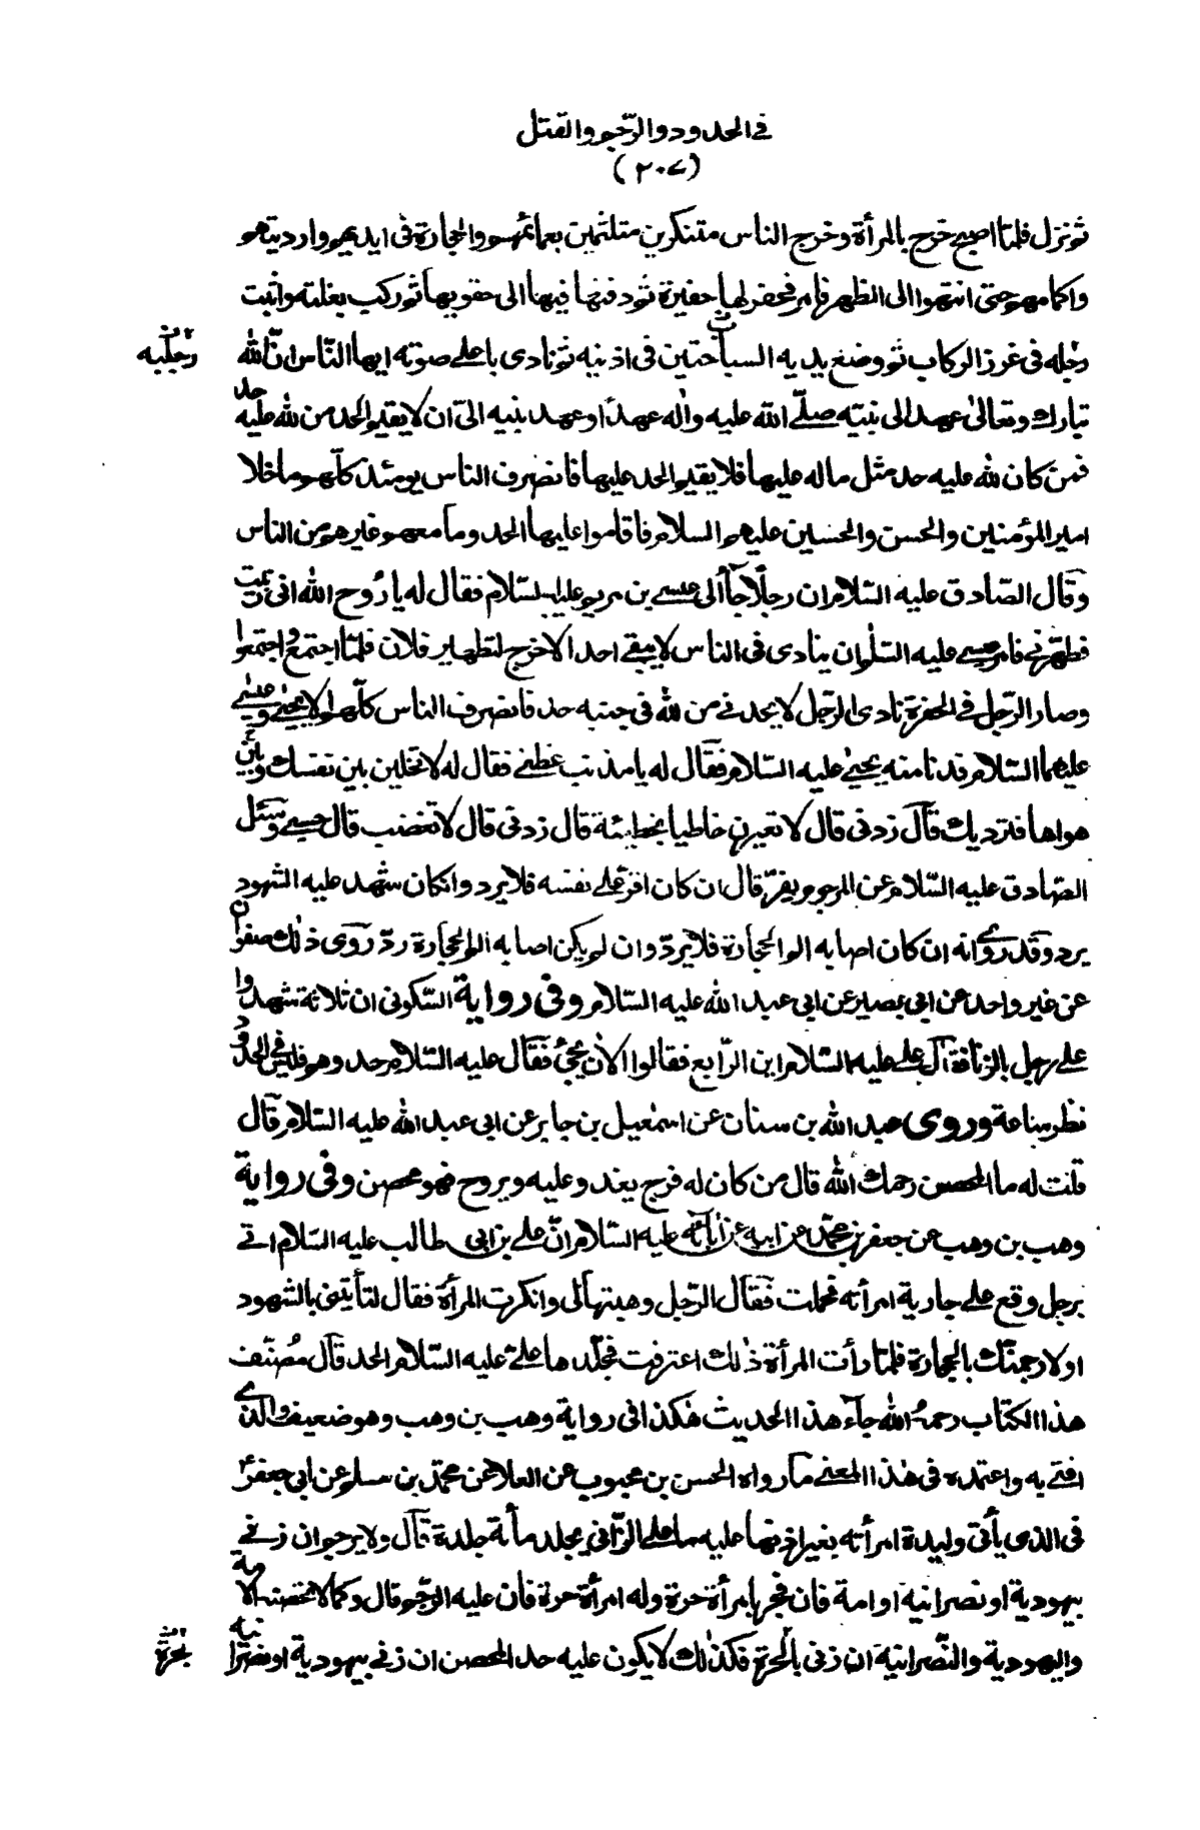 في الحدود والرّجم والقتل
(٢٠٧)
ثم نزل فلمّا اصبح خرج بالمرأة وخرج الناس متنكرين متلثمين بعمائمهم والحجارة في ايديهم وارديتهم
واكمامهم حتى انتهوا الى الظهر فامر فحفر لها حفيرة ثم دفنها فيها الى حقويها ثم ركب بغلته واثبت
رجله في غرز الركاب ثم وضع يديه السباحتين في اذنيه ثم نادى باعلى صوته ايها النّاس انّ الله
رجليه
تبارك وتعالى عهد الى نبيّه صلّى الله عليه واله عهدًا وعهد نبيه الىّ ان لا يقيم الحد من لله عليه حد
فمن كان لله عليه حد مثل ما له عليها فلا يقيم الحد عليها فانصرف الناس يومئذ كلّهم ما خلا
امير المؤمنين والحسن والحسين عليهم السلام فاقاموا عليها الحد وما معهم غيرهم من الناس
وقال الصّادق عليه السّلام ان رجلًا جآء الى عيسى بن مريم عليه السّلام فقال له يا رُوح الله انى زنيت
فطهّرني فامر عيسى عليه السّلام ان ينادى في الناس لا يبقى احد الا خرج لتطهير فلان فلمّا اجتمع واجتمعوا
وصار الرّجل في الحفرة نادى الرّجل لا يحدنى من لله في جنبه حد فانصرف الناس كلّهم الا يحيى وعيسى
عليهما السّلام فدنا منه يحيى عليه السّلام فقال له يا مذنب عظنى فقال له لا تخلين بين نفسك وبين
هواها فترديك قال زدنى قال لا تعيرن خاطيا بخطيئة قال زدنى قال لا تغضب قال حسبى وسئل
الصّادق عليه السّلام عن المرجوم يفرّ قال ان كان اقر على نفسه فلا يرد وان كان شهد عليه الشهود
يرد وقد روى انه ان كان اصابه الم الحجارة فلا يردّ وان لم يكن اصابه الم الحجارة ردّ روى ذلك صفوان
عن غير واحد عن ابى بصير عن ابى عبد الله عليه السّلام وفى رواية السّكونى ان ثلاثة شهدوا
على رجل بالزنا فقال على عليه السّلام اين الرّابع فقالوا الآن يجئ فقال عليه السّلام حدوهم فليس في الحدود
نظر ساعة وروى عبد الله بن سنان عن اسمعيل بن جابر عن ابى عبد الله عليه السّلام قال
قلت له ما المحصن رحمك الله قال من كان له فرج يغدو عليه ويروح فهو محصن وفى رواية
وهب بن وهب عن جعفر بن محمّد عن ابيه عن آبائه عليه السّلام انّ على بن ابى طالب عليه السّلام اتى
برجل وقع على جارية امرأته فحملت فقال الرّجل وهبتها لى وانكرت المرأة فقال لتأتيّنى بالشهود
او لارجمنّك بالحجارة فلمّا رأت المرأة ذلك اعترفت فجلدها علىّ عليه السّلام الحد قال مصنّف
هذا الكتاب رحمه الله جآء هذا الحديث هكذا فى رواية وهب بن وهب وهو ضعيف والّذى
افتى به واعتمده فى هذا المعنى ما رواه الحسن بن محبوب عن العلا عن محمّد بن مسلم عن ابى جعفرؑ
فى الذى يأتى وليدة امرأته بغير اذنها عليه ما على الزّانى يجلد مأة جلدة قال ولا يرجم ان زنى
بيهودية او نصرانية او امة فان فجر بامرأة حرة وله امرأة حرة فان عليه الرّجم قال وكما لا تحصنه الامة
واليهودية والنّصرانية ان زنى بالحرة فكذلك لا يكون عليه حد المحصن ان زنى بيهودية او نصرانية
بحرّة